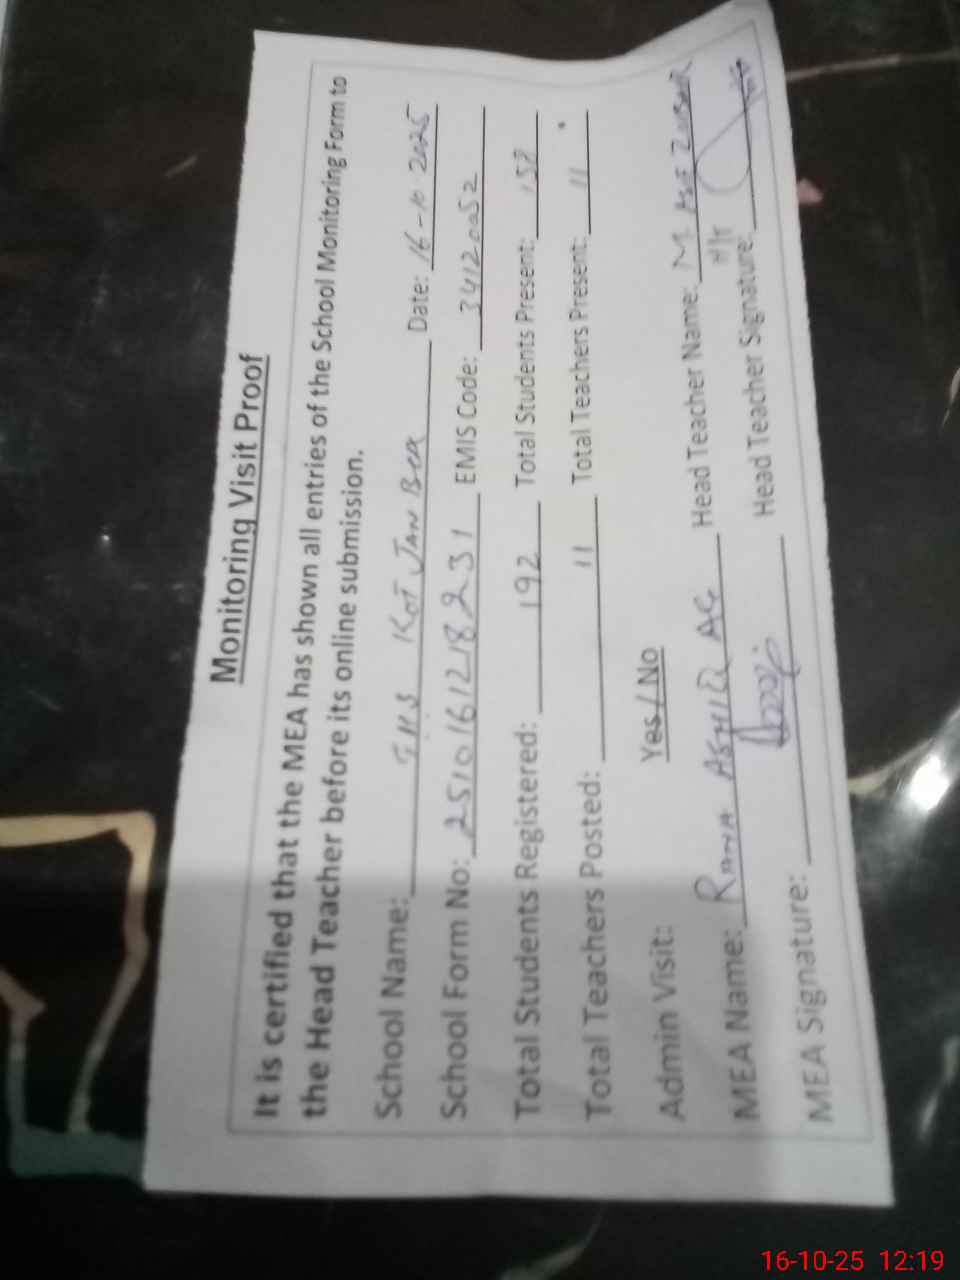 Monitoring Visit Proof
It is certified that the MEA has shown all entries of the School Monitoring Form to
the Head Teacher before its online submission.
School Name: GHS KOT JAN BEG Date: 16-10-2025
School Form No: 2510161218231 EMIS Code: 34120052
Total Students Registered: 192 Total Students Present: 158
Total Teachers Posted: 11 Total Teachers Present: 11
Admin Visit: Yes/No
MEA Name: RANA ASHIQ Head Teacher Name: M
MEA Signature: Head Teacher Signature:
16-10-25 12:19